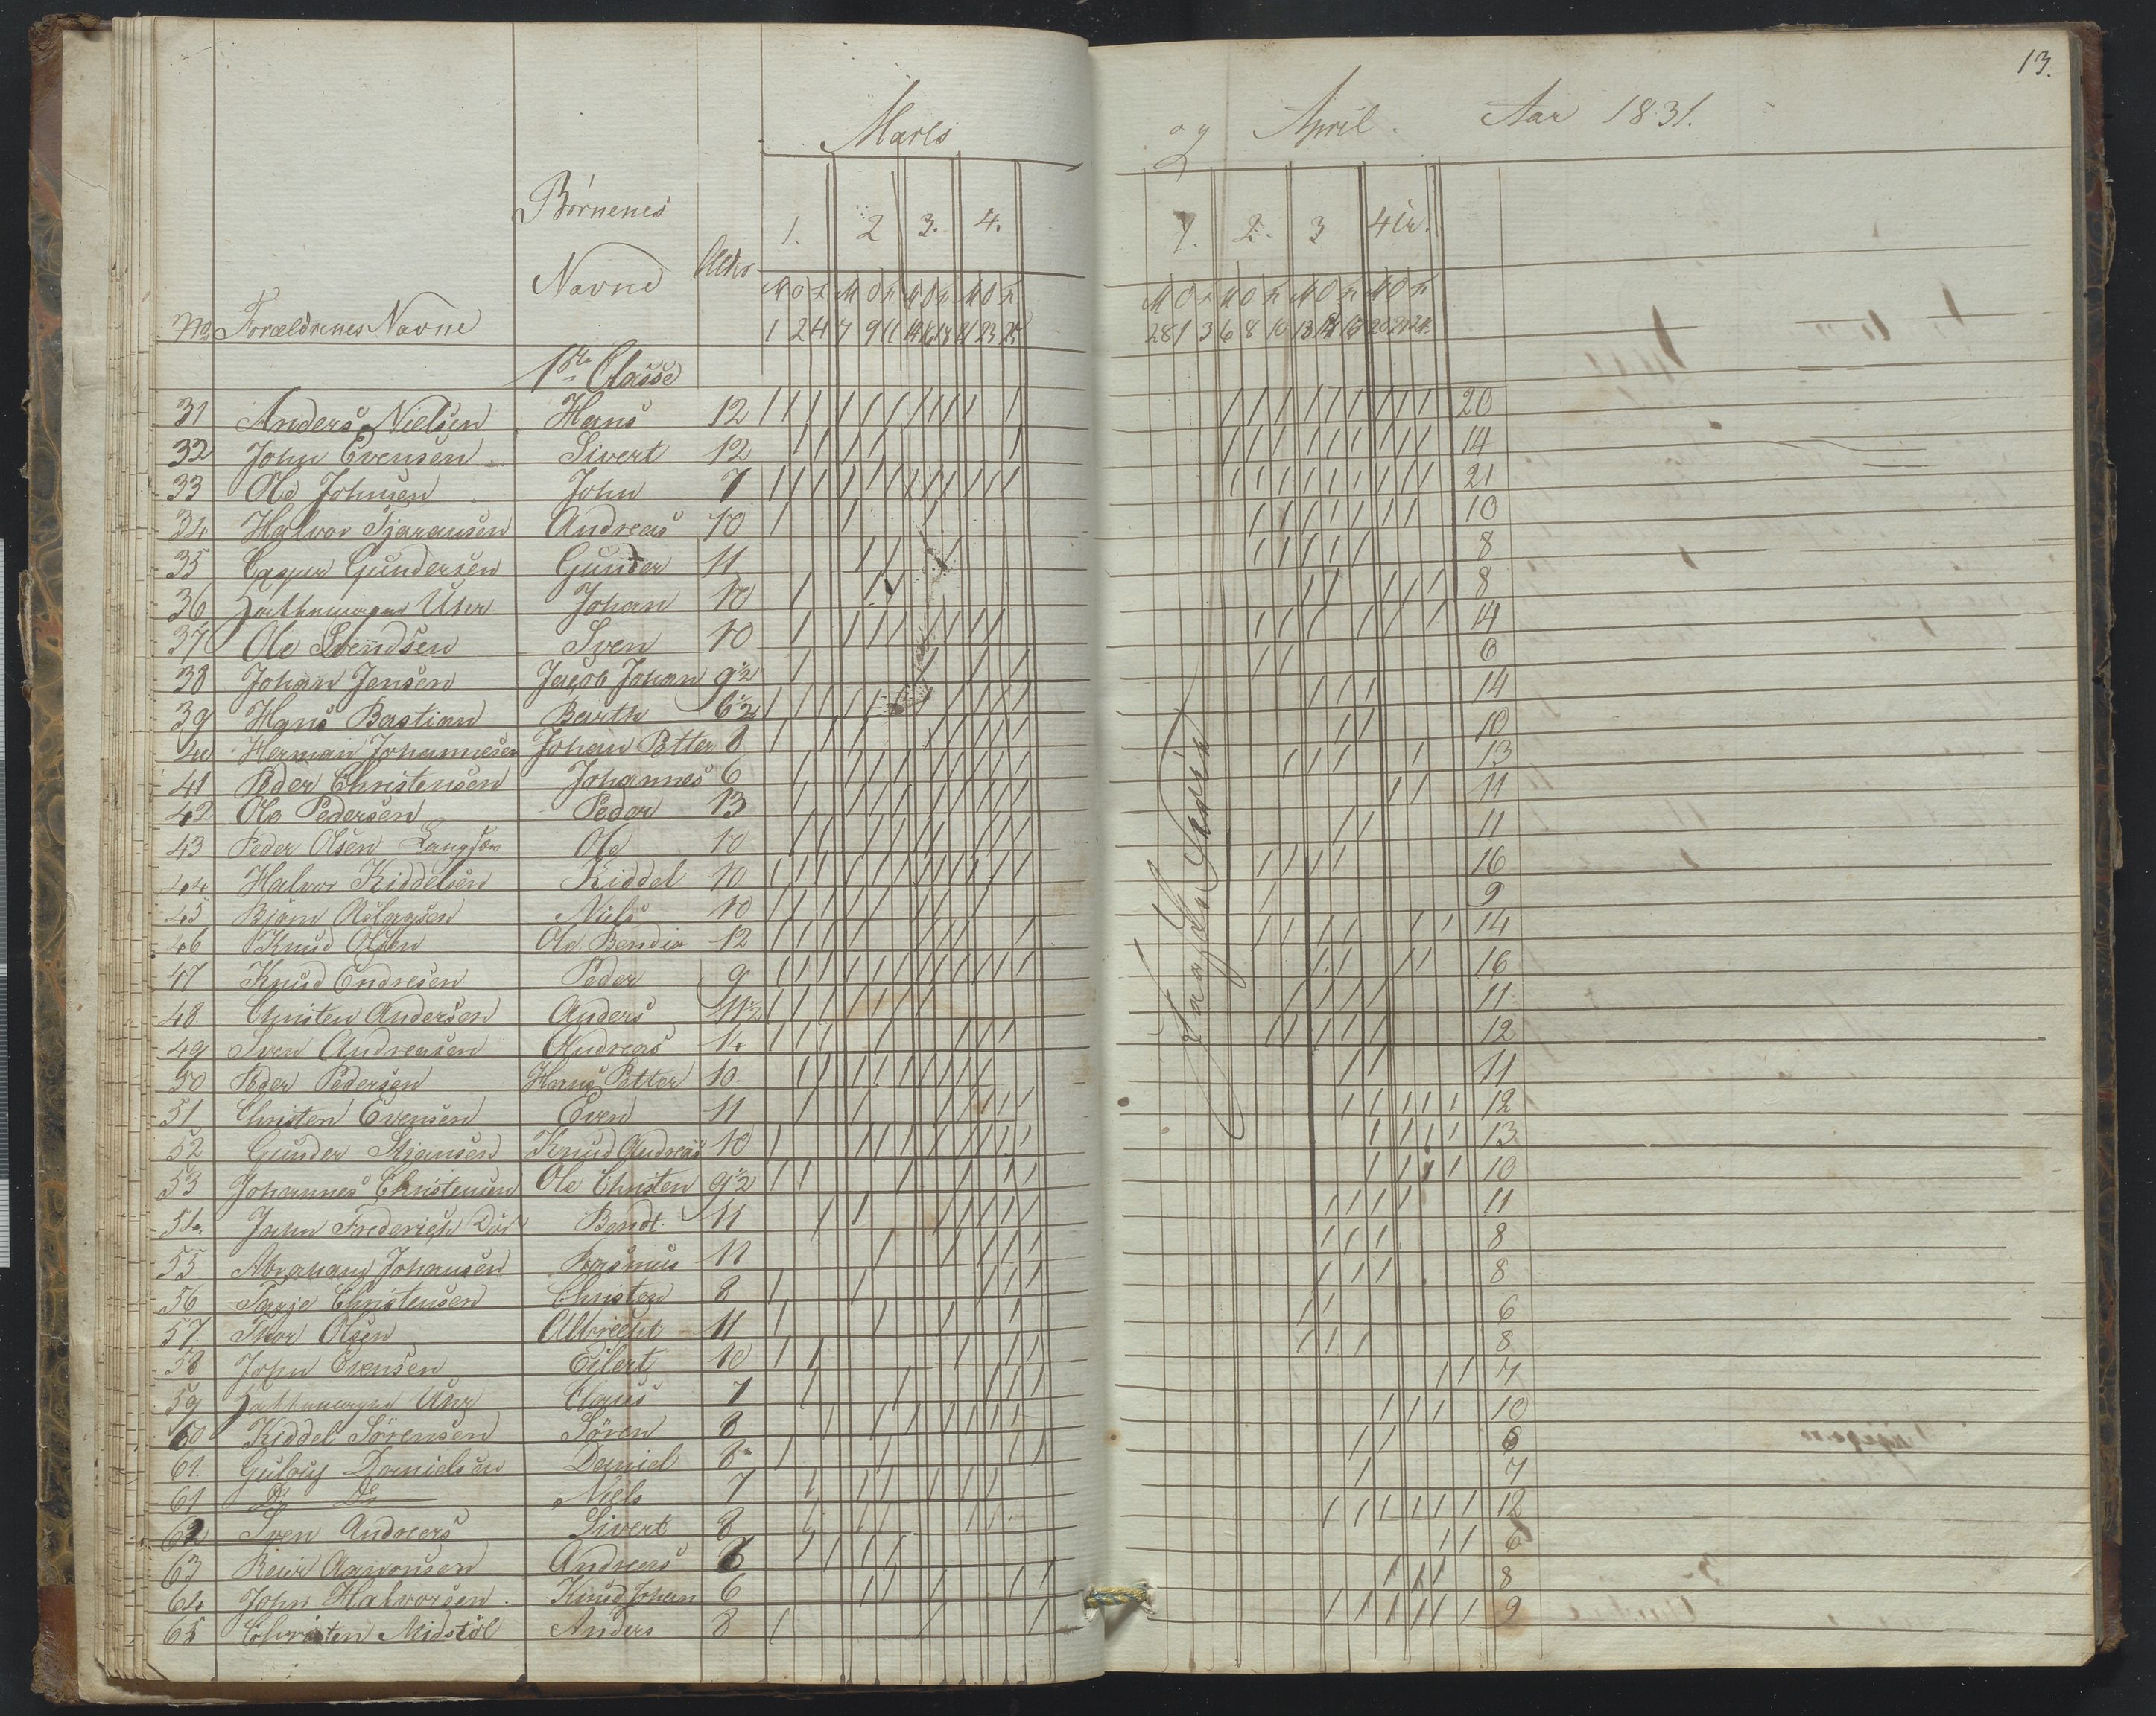 13.
Marts og April. Aar 1831.
Børnenes
1. 2 3. 4. 1. 2. 3 4
Navne Alder
M O F M O F M O F M O F M O F M O F M O F M O F
No Forældrenes Navne 1 2 4 7 9 11 14 16 18 21 23 25 28 1 3 6 8 10 13
1ste Classe
31 Anders Nielsen Hans 12 20
32 John Evensen Sivert 12 14
33 Ole Johnsen John 7 21
34 Halvor Andreas 10 10
35 Casper Gundersen Gunder 11 8
36 Johan 10 8
37 Ole Svendsen Sven 10 14
38 Johan Jensen Jacob Johan 9½ 6
39 Hans Bastian Barth 6½ 14
40 Herman Johannesen Johan Petter 8 10
41 Peder Christensen Johannes 6 13
42 Ole Pedersen Peder 13 11
43 Peder Olsen Ole 10 11
44 Halvor Kiddelsen Kiddel 10 16
45 Biörn Aslagsen Niels 10 9
46 Knud Olsen Ole Bendix 12 14
47 Knud Endresen Peder 9 16
48 Christen Andersen Anders 11½ 11
49 Sven Andreasen Andreas 12
50 Peder Pedersen Hans Petter 10 11
51 Christen Evensen Even 11 12
52 Gunder Knud Andreas 10 13
53 Johannes Christensen Ole Christen 9½ 10
54. John Frederich Bendt. 11 11
55 Abraham Johansen Rasmus 11 8
56 Tarje Christensen Christen 8 8
57. Thor Olsen Albrecht 11 6
58 John Evensen Eilert 10 8
59 Claus 7 7
60 Kiddel Sörensen Sören 8 10
61. Danielsen Daniel 8 6
61 Do Do Niels 7 7
62 Sven Andreas Sivert 8 12
63 Andreas 6
64 John Halvorsen Knud Johan 6 8
65 Christen Midstöl Anders 8 9